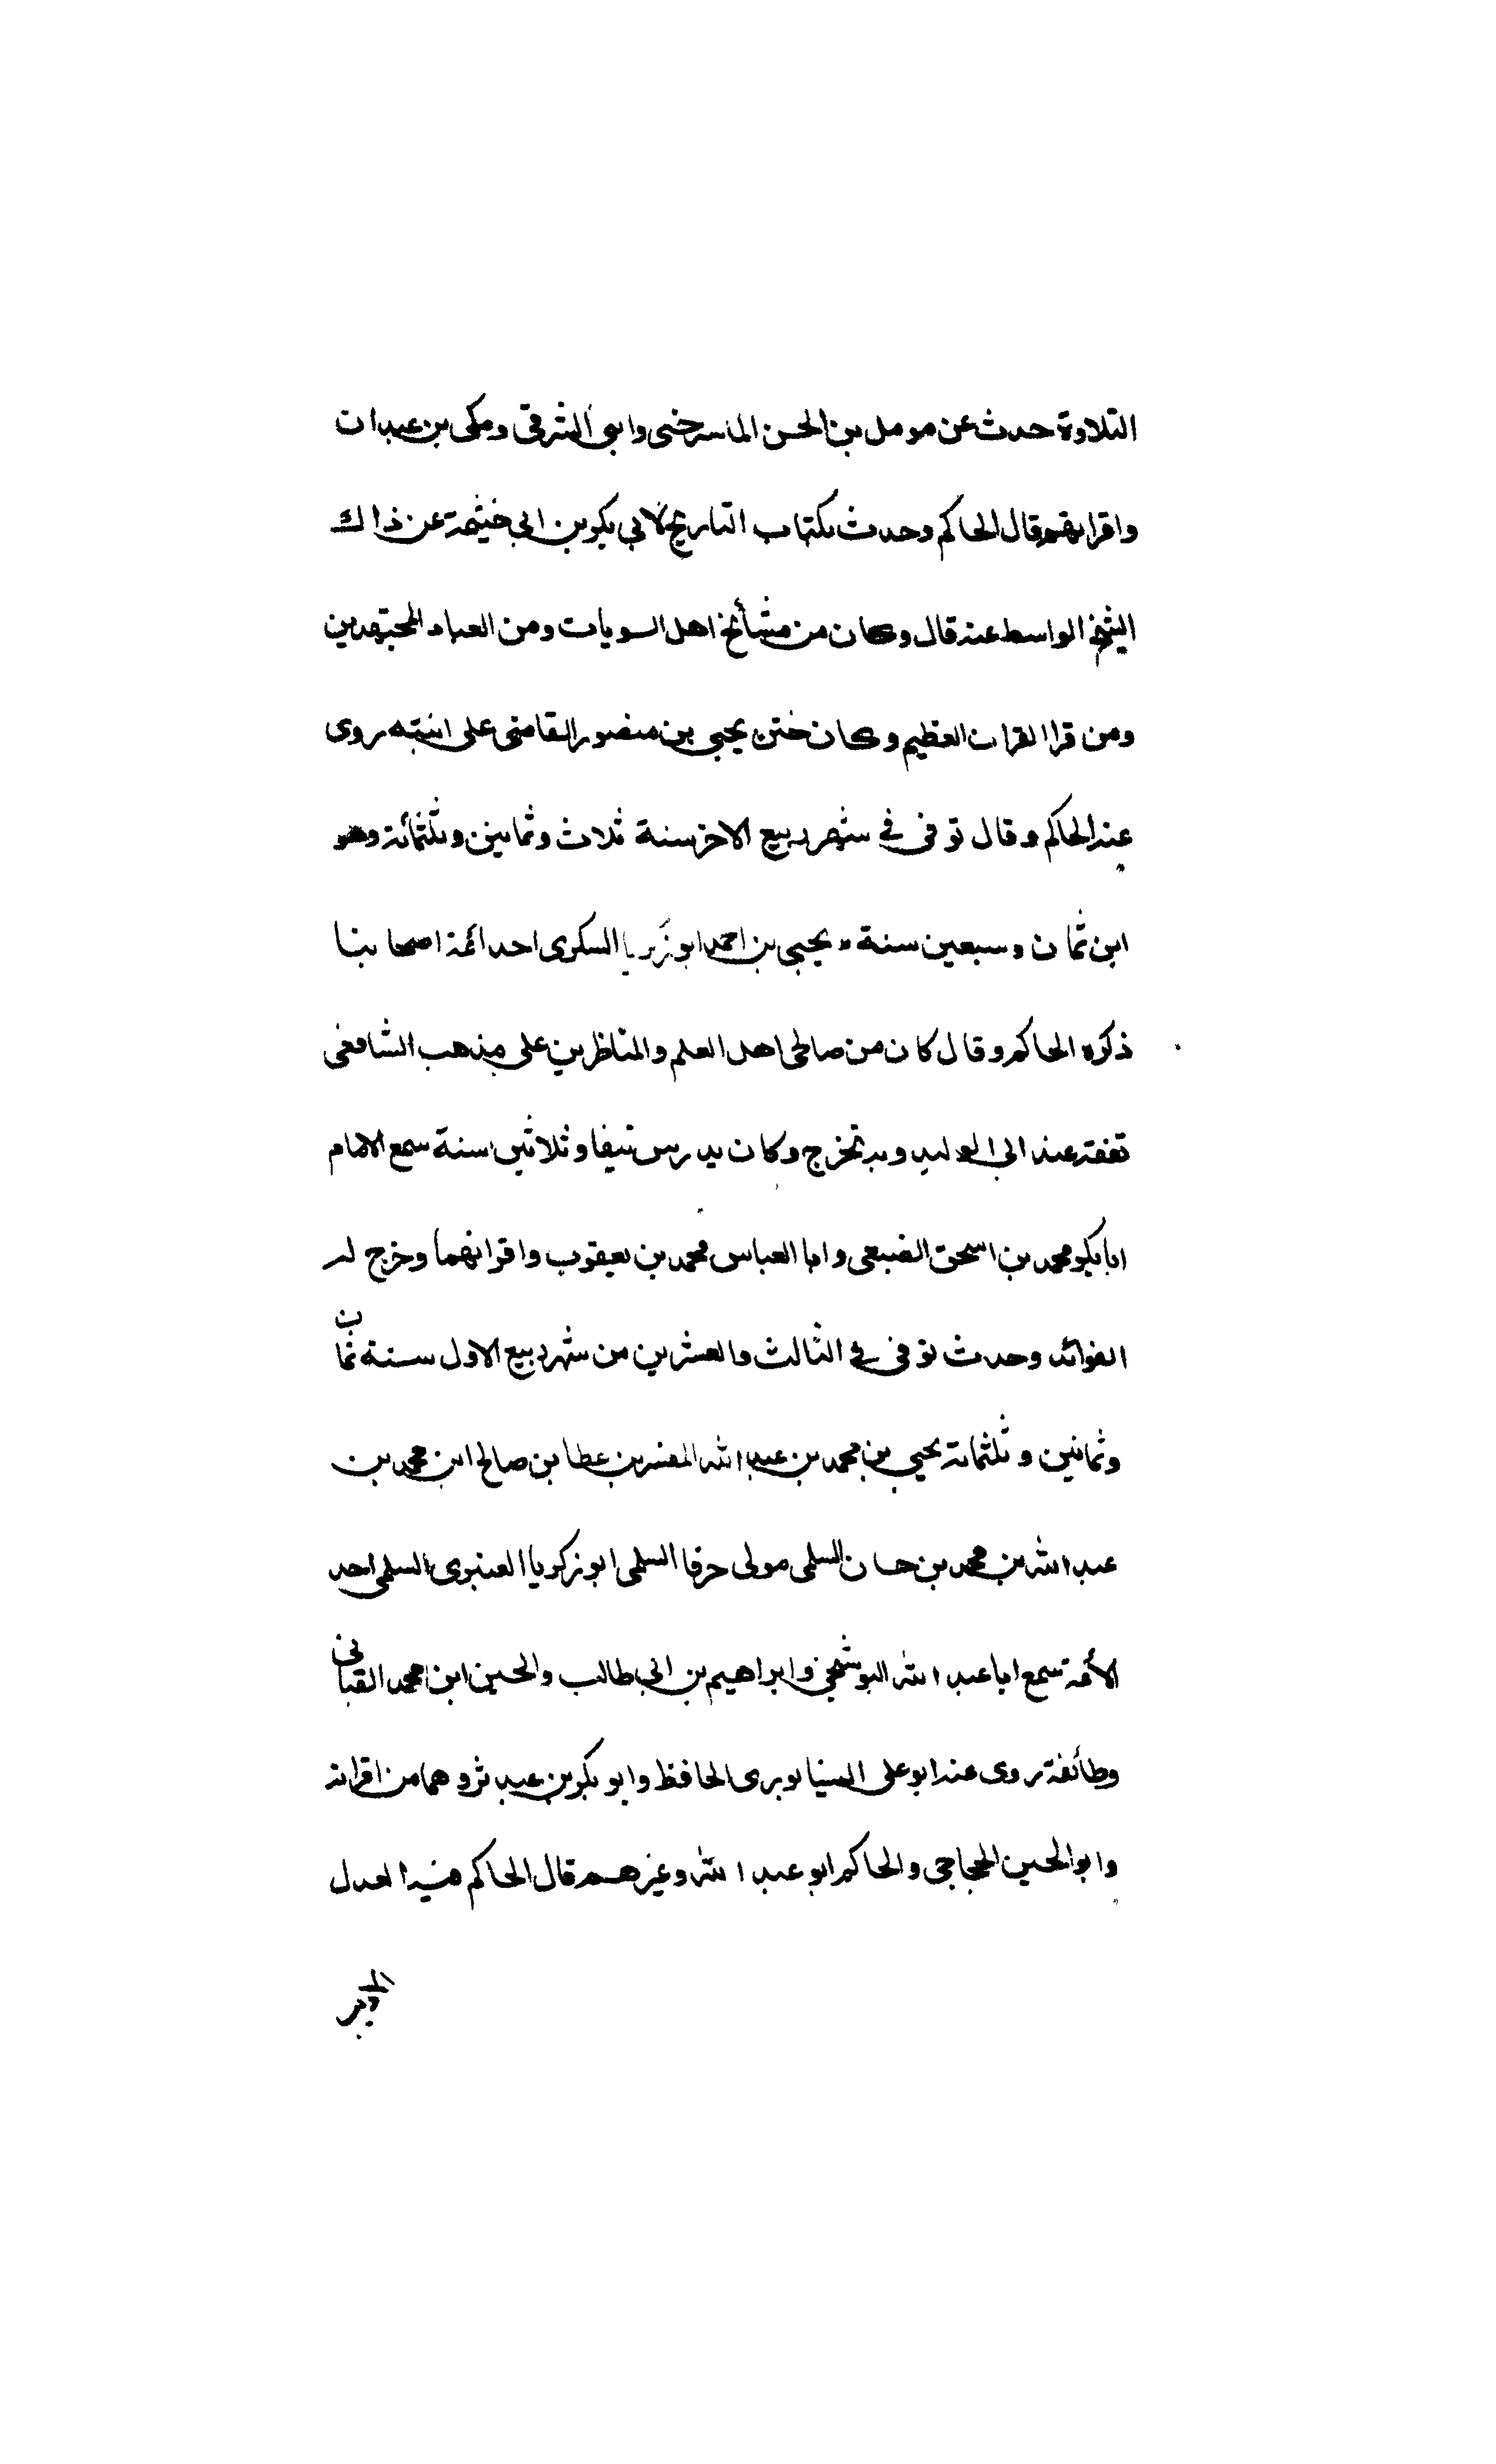 التلاوة حدث عن مومل بن الحسن الماسرخسى وابى الشرقى ومكى بن عبدان
واقرانهم قال الحاكم وحدث بكتاب التاريخ لابى بكر بن ابى خيثمة عن ذاك
الشيخ الواسط عنه قال وكان من مشائخ اهل السويات ومن العباد المجتهدين
ومن قرا القران العظيم وكان ختن يحيى بن منصور القاضى على ابنته روى
عنه الحاكم وقال توفى فى شهر ربيع الاخر سنة ثلاث وثمانين وثلثمائة وهو
ابن ثمان وسبعين سنة يحيى بن احمد ابو زكريا السكرى احد ائمة اصحابنا
ذكره الحاكم وقال كان من صالحى اهل العلم والمناظرين على مذهب الشافعى
تفقه عند ابى الوليد وبه تخرج وكان يدرس نيفا وثلاثين سنة سمع الامام
ابا بكر محمد بن اسحق الضبعى وابا العباس محمد بن يعقوب واقرانهما وخرج له
الفوائد وحدث توفى فى الثالث والعشرين من شهر ربيع الاول سنة ثمان
وثمانين وثلثمائة يحيى بن محمد بن عبد الله المفسر بن عطا بن صالح ابن محمد بن
عبد الله بن محمد بن حسان السلمى مولى حرفا السلمى ابو زكريا العنبرى السلمى احد
الأئمة سمع ابا عبد الله البوشنجى وابراهيم بن ابى طالب والحسين ابن محمد القبانى
وطائفة روى عنه ابو على النيسابورى الحافظ وابو بكر بن عبدش وهما من اقرانه
وابو الحسين الحجاجى والحاكم ابو عبد الله وغيرهم قال الحاكم فيه العدل